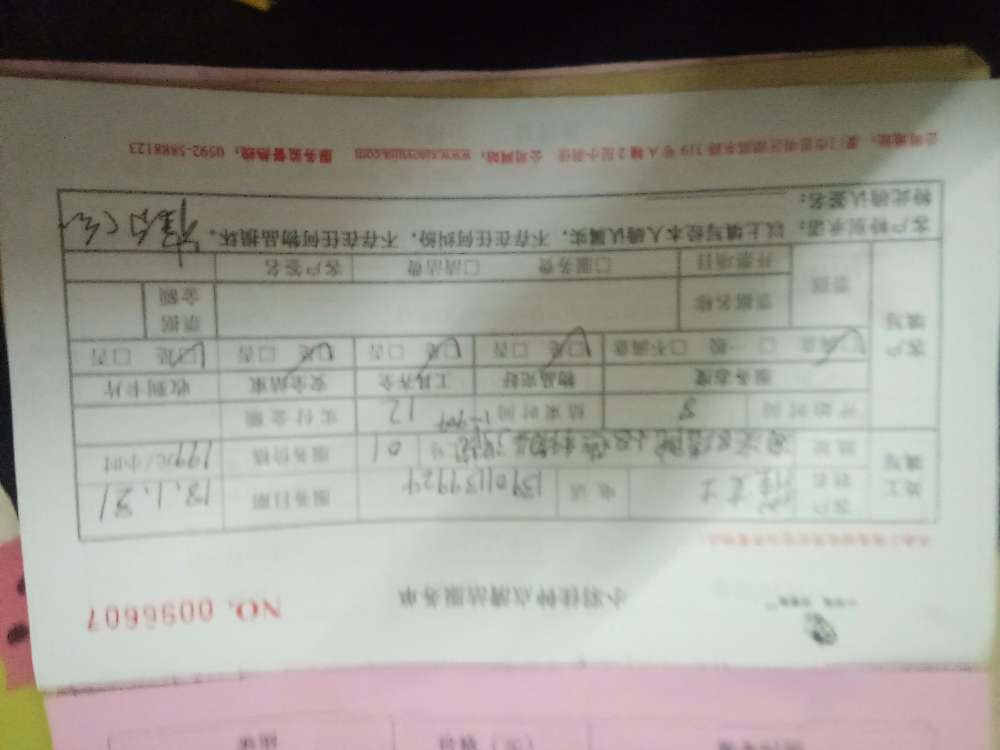 小羽佳钟点清洁服务单
NO. 0096607
员工填写
客户姓名
电话 13901139924
服务日期 18.1.31
地址
号 01
服务价格 199元/小时
开始时间 8
结束时间 12
实付金额
客户填写
服务态度
物品完好
工具齐全
安全结束
收到卡片
☑满意 □一般 □不满意
☑是 □否
☑是 □否
☑是 □否
☑是 □否
票据
票据名称
票据金额
开票项目
□服务费 □清洁费
客户签名
客户特别承诺：以上填写经本人确认属实，不存在任何纠纷，不存在任何物品损坏。
特此确认签名：
公司地址：厦门市思明区湖滨东路319号A幢2层小羽佳 公司网站：www.xiaoyujia.com 服务监督热线：0592-5888123